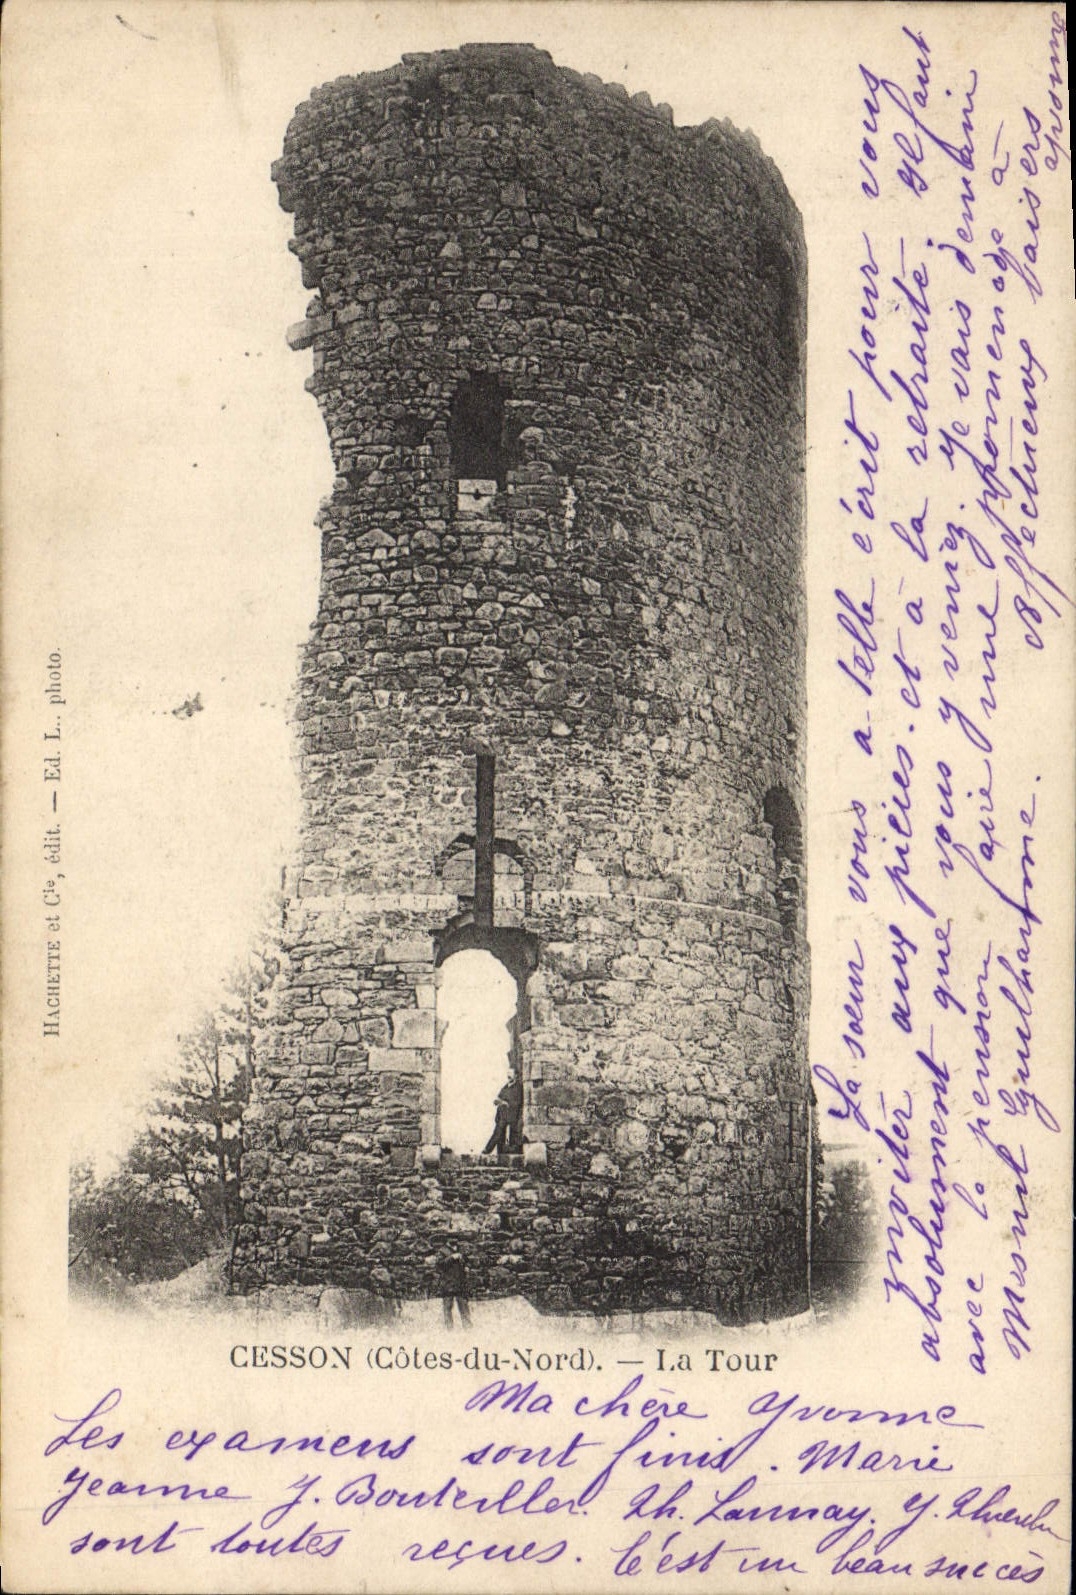 HACHETTE et Cie, édit. — Ed. L. photo.
CESSON (Côtes-du-Nord). — La Tour
Ma chère Yvonne
Les examens sont finis. Marie
Jeanne Y. Bouteiller. Th. Launay. Y.
sont toutes reçues. C'est un beau succès
La sœur vous a-t-elle écrit pour vous
inviter aux pièces. et à la retraite. Il faut
absolument que vous y veniez. Je vais demain
avec la pension faire une promenade à
Mesnil
Affectueux baisers
Yvonne